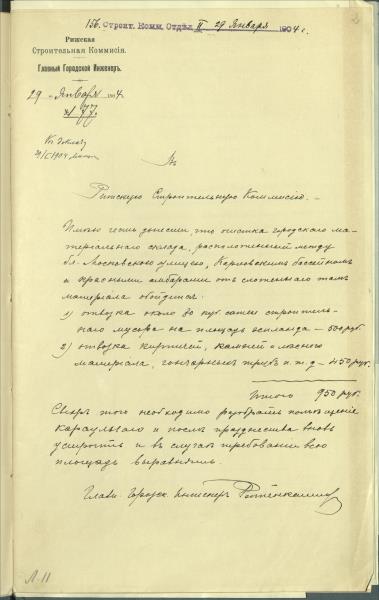 156. Строит. Комм. Отдѣл II 29 Января 1904 г.
Рижская
Строительная Коммисія.
Главный Городской Инженеръ.
29 Января 1904.
№ 77.
Къ докладу
29/I 1904
Въ
Рижскую Строительную Коммисію.
Имѣю честь донести, что очистка городскаго ма-
теріальнаго склада, расположеннаго между
б. Московскою улицею, Карловскимъ бассейномъ
и красными амбарами отъ сложеннаго тамъ
матеріала обойдется:
1) отвозка около 20 куб. саж. строитель-
наго мусора на площадь эспланада – 500 руб.
2) отвозка кирпичей, камней и лѣснаго
матеріала, гончарныхъ трубъ и т. д – 450 руб.
Итого 950 руб.
Сверхъ того необходимо разобрать помѣщеніе
караульнаго и послѣ празднества вновь
устроить и въ случаѣ требованія всю
площадь выравнять.
Главн. Городск. Инженеръ
Л. 11